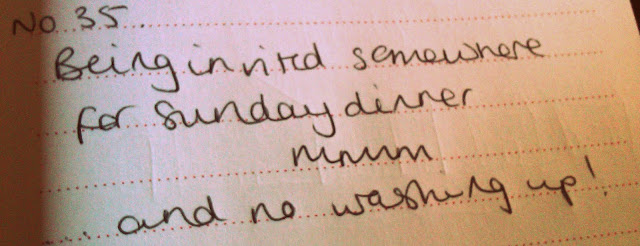 No 35.
Being invited somewhere
for sunday dinner
mmmm
... and no washing up!